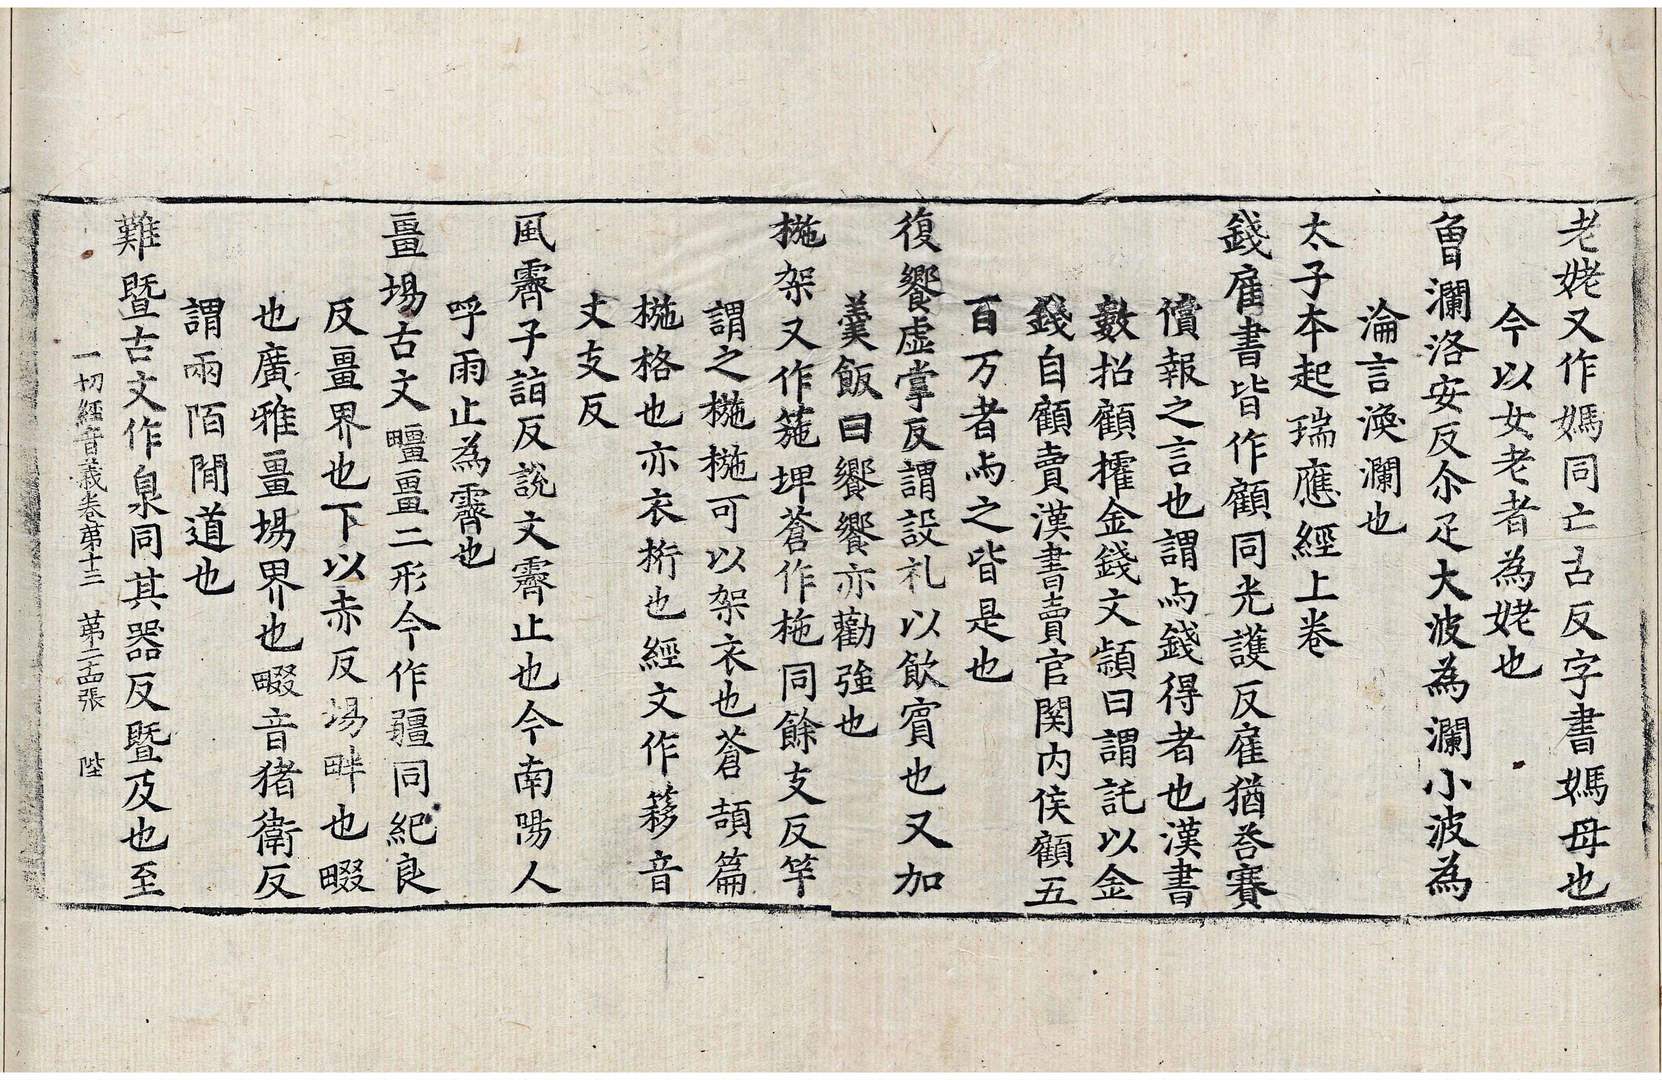 老姥又作媽同亡古反字書媽母也
今以女老者為姥也
曾瀾洛安反尒疋大波為瀾小波為
淪言渙瀾也
太子本起瑞應經上卷
錢雇書皆作顧同光護反雇猶荅賽
儥報之言也謂与錢得者也漢書
數招顧㩲金錢文頴曰謂託以金
錢自顧賣漢書賣官関內侯顧五
百万者与之皆是也
復饗虛掌反謂設礼以飲賓也又加
羮飯曰饗饗亦勸強也
椸架又作箷㘹蒼作柂同餘支反竿
謂之椸椸可以架衣也蒼頡篇
椸格也亦衣桁也經文作簃音
丈支反
風霽子詣反說文霽止也今南陽人
呼雨止為霽也
畺埸古文㽵畺二形今作疆同紀良
反畺界也下以赤反埸畔也畷
也廣雅畺埸界也畷音猪衛反
謂兩陌閒道也
難暨古文作臮同其器反暨及也至
一切經音義卷第十三　第二十四張　陛